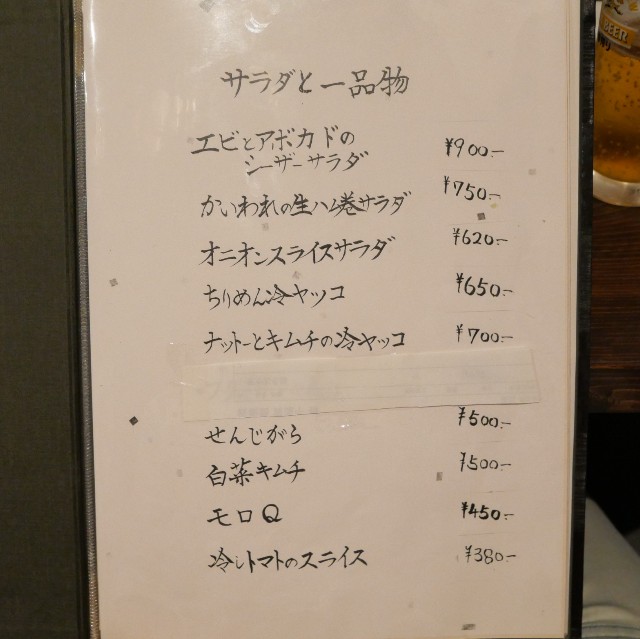 サラダと一品物
エビとアボカドの
シーザーサラダ ¥900.-
かいわれの生ハム巻サラダ ¥750.-
オニオンスライスサラダ ¥620.-
ちりめん冷ヤッコ ¥650.-
ナットーとキムチの冷ヤッコ ¥700.-
せんじがら ¥500.-
白菜キムチ ¥500.-
モロQ ¥450.-
冷しトマトのスライス ¥380.-
BEER